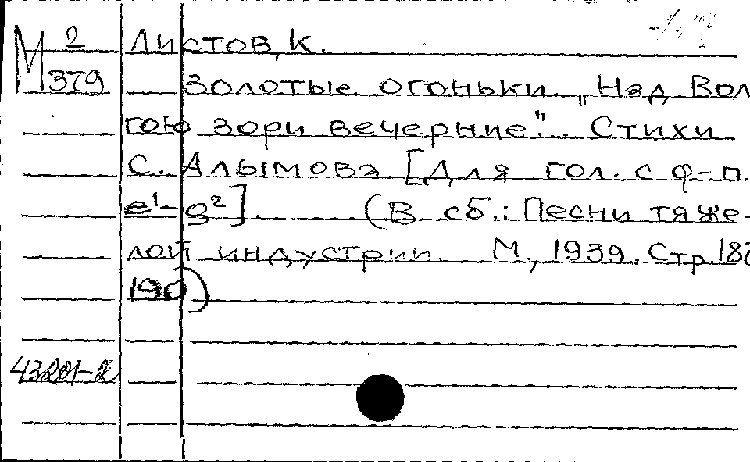 М 2 Листов, К.
379 Золотые огоньки. „Над Вол
гою зори вечерние". Стихи
С. Алымова [Для гол. с ф-п.
e¹-g²]. (В сб.: Песни тяже-
лой индустрии М, 1939. Стр 18
190)
43201-2